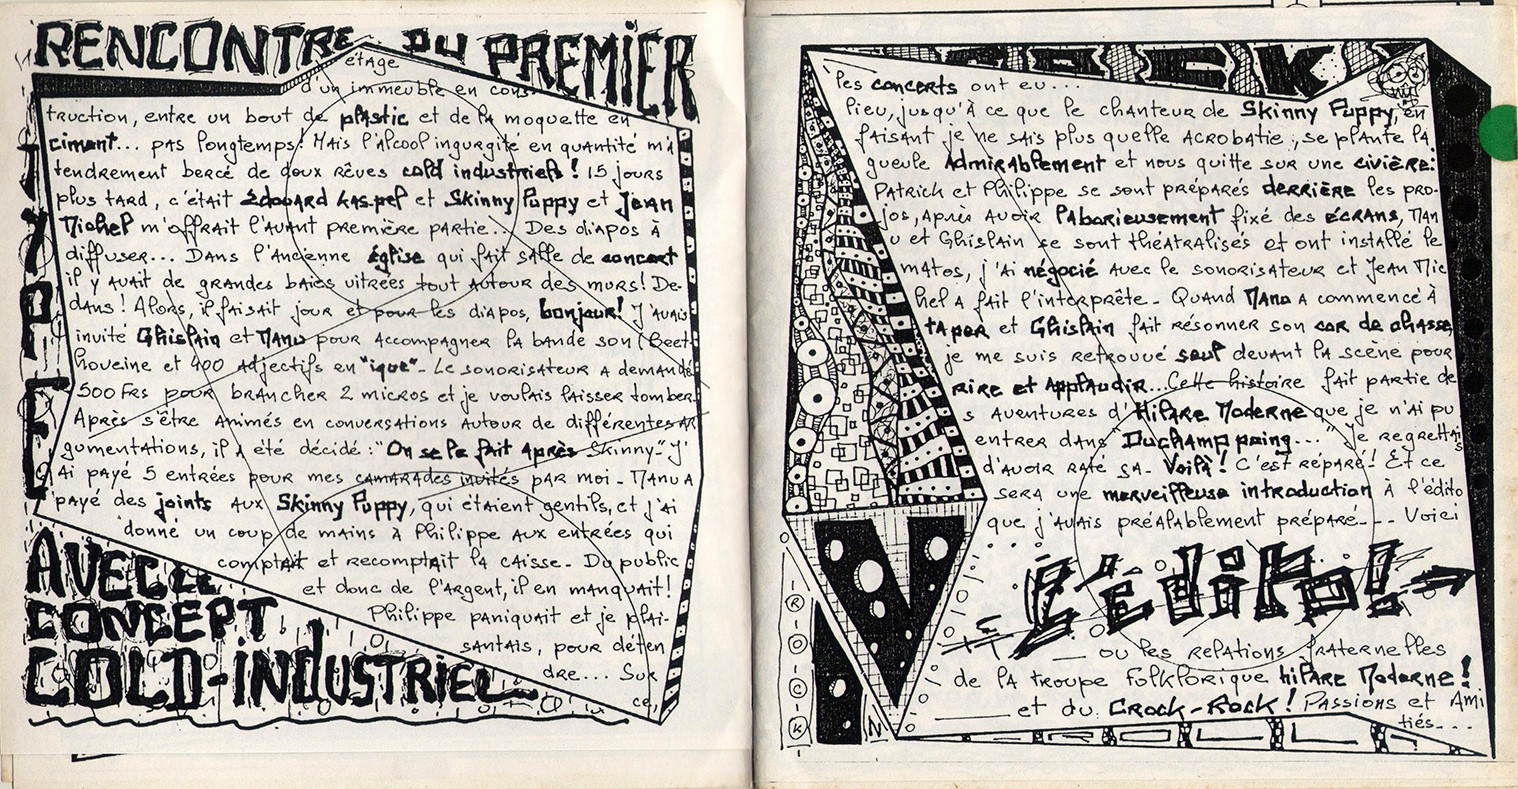 RENCONTRE DU PREMIER
TYPE
étage
d'un immeuble en cons-
truction, entre un bout de plastic et de la moquette en
ciment... pas longtemps! Mais l'alcool ingurgité en quantité m'a
tendrement bercé de doux rêves cold industriels! 15 jours
plus tard, c'était Edouard Kaspel et Skinny Puppy et Jean
Michel m'offrait l'avant première partie... Des diapos à
diffuser... Dans l'ancienne église qui fait salle de concert
il y avait de grandes baies vitrées tout autour des murs! De-
dans! Alors, il faisait jour et pour les diapos, bonjour! J'avais
invité Ghislain et Manu pour accompagner la bande son (Beet-
hoveine et 400 adjectifs en "ique"- Le sonorisateur a demandé
500 Frs pour brancher 2 micros et je voulais laisser tomber.
Après s'être animés en conversations autour de différentes ar
gumentations, il a été décidé: "On se le fait après Skinny-" J'
ai payé 5 entrées pour mes camarades invités par moi - Manu a
payé des joints aux Skinny Puppy, qui étaient gentils, et j'ai
donné un coup de mains à Philippe aux entrées qui
comptait et recomptait la caisse - Du public
et donc de l'argent, il en manquait!
Philippe paniquait et je plai-
santais, pour déten
dre... Sur
ce,
AVEC LE
CONCEPT
COLD-INDUSTRIEL
ROCK
les concerts ont eu...
lieu, jusqu'à ce que le chanteur de Skinny Puppy, en
faisant je ne sais plus quelle acrobatie, se plante la
gueule admirablement et nous quitte sur une civière:
Patrick et Philippe se sont préparés derrière les pro-
jos, Après avoir laborieusement fixé des écrans, Man
u et Ghislain se sont théatralisés et ont installé le
matos, j'ai négocié avec le sonorisateur et Jean Mic
hel a fait l'interprête - Quand Manu a commencé à
taper et Ghislain fait résonner son cor de chasse,
je me suis retrouvé seul devant la scène pour
rire et applaudir... Cette histoire fait partie de
s aventures d'Hilare Moderne que je n'ai pu
entrer dans "Duchamp poing... Je regrettais
d'avoir raté ça - Voilà! C'est réparé! Et ce
sera une merveilleuse introduction à l'édito
que j'avais préalablement préparé--- Voici
L'édito!
ou les relations fraternelles
de la troupe folklorique hilare Moderne!
et du CROCK-ROCK! Passions et Ami
tiés...